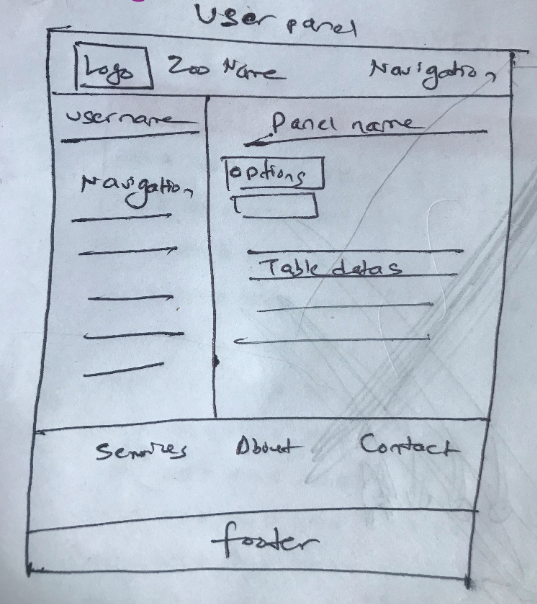 User panel
Logo Zoo Name Navigation
username
Panel name
Navigation
options
Table datas
Services About Contact
footer